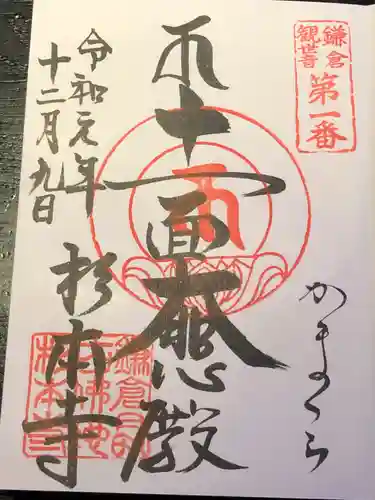 鎌倉
観世音
第一番
かまくら
十一面
大悲殿
令和元年
十二月九日
杉本寺